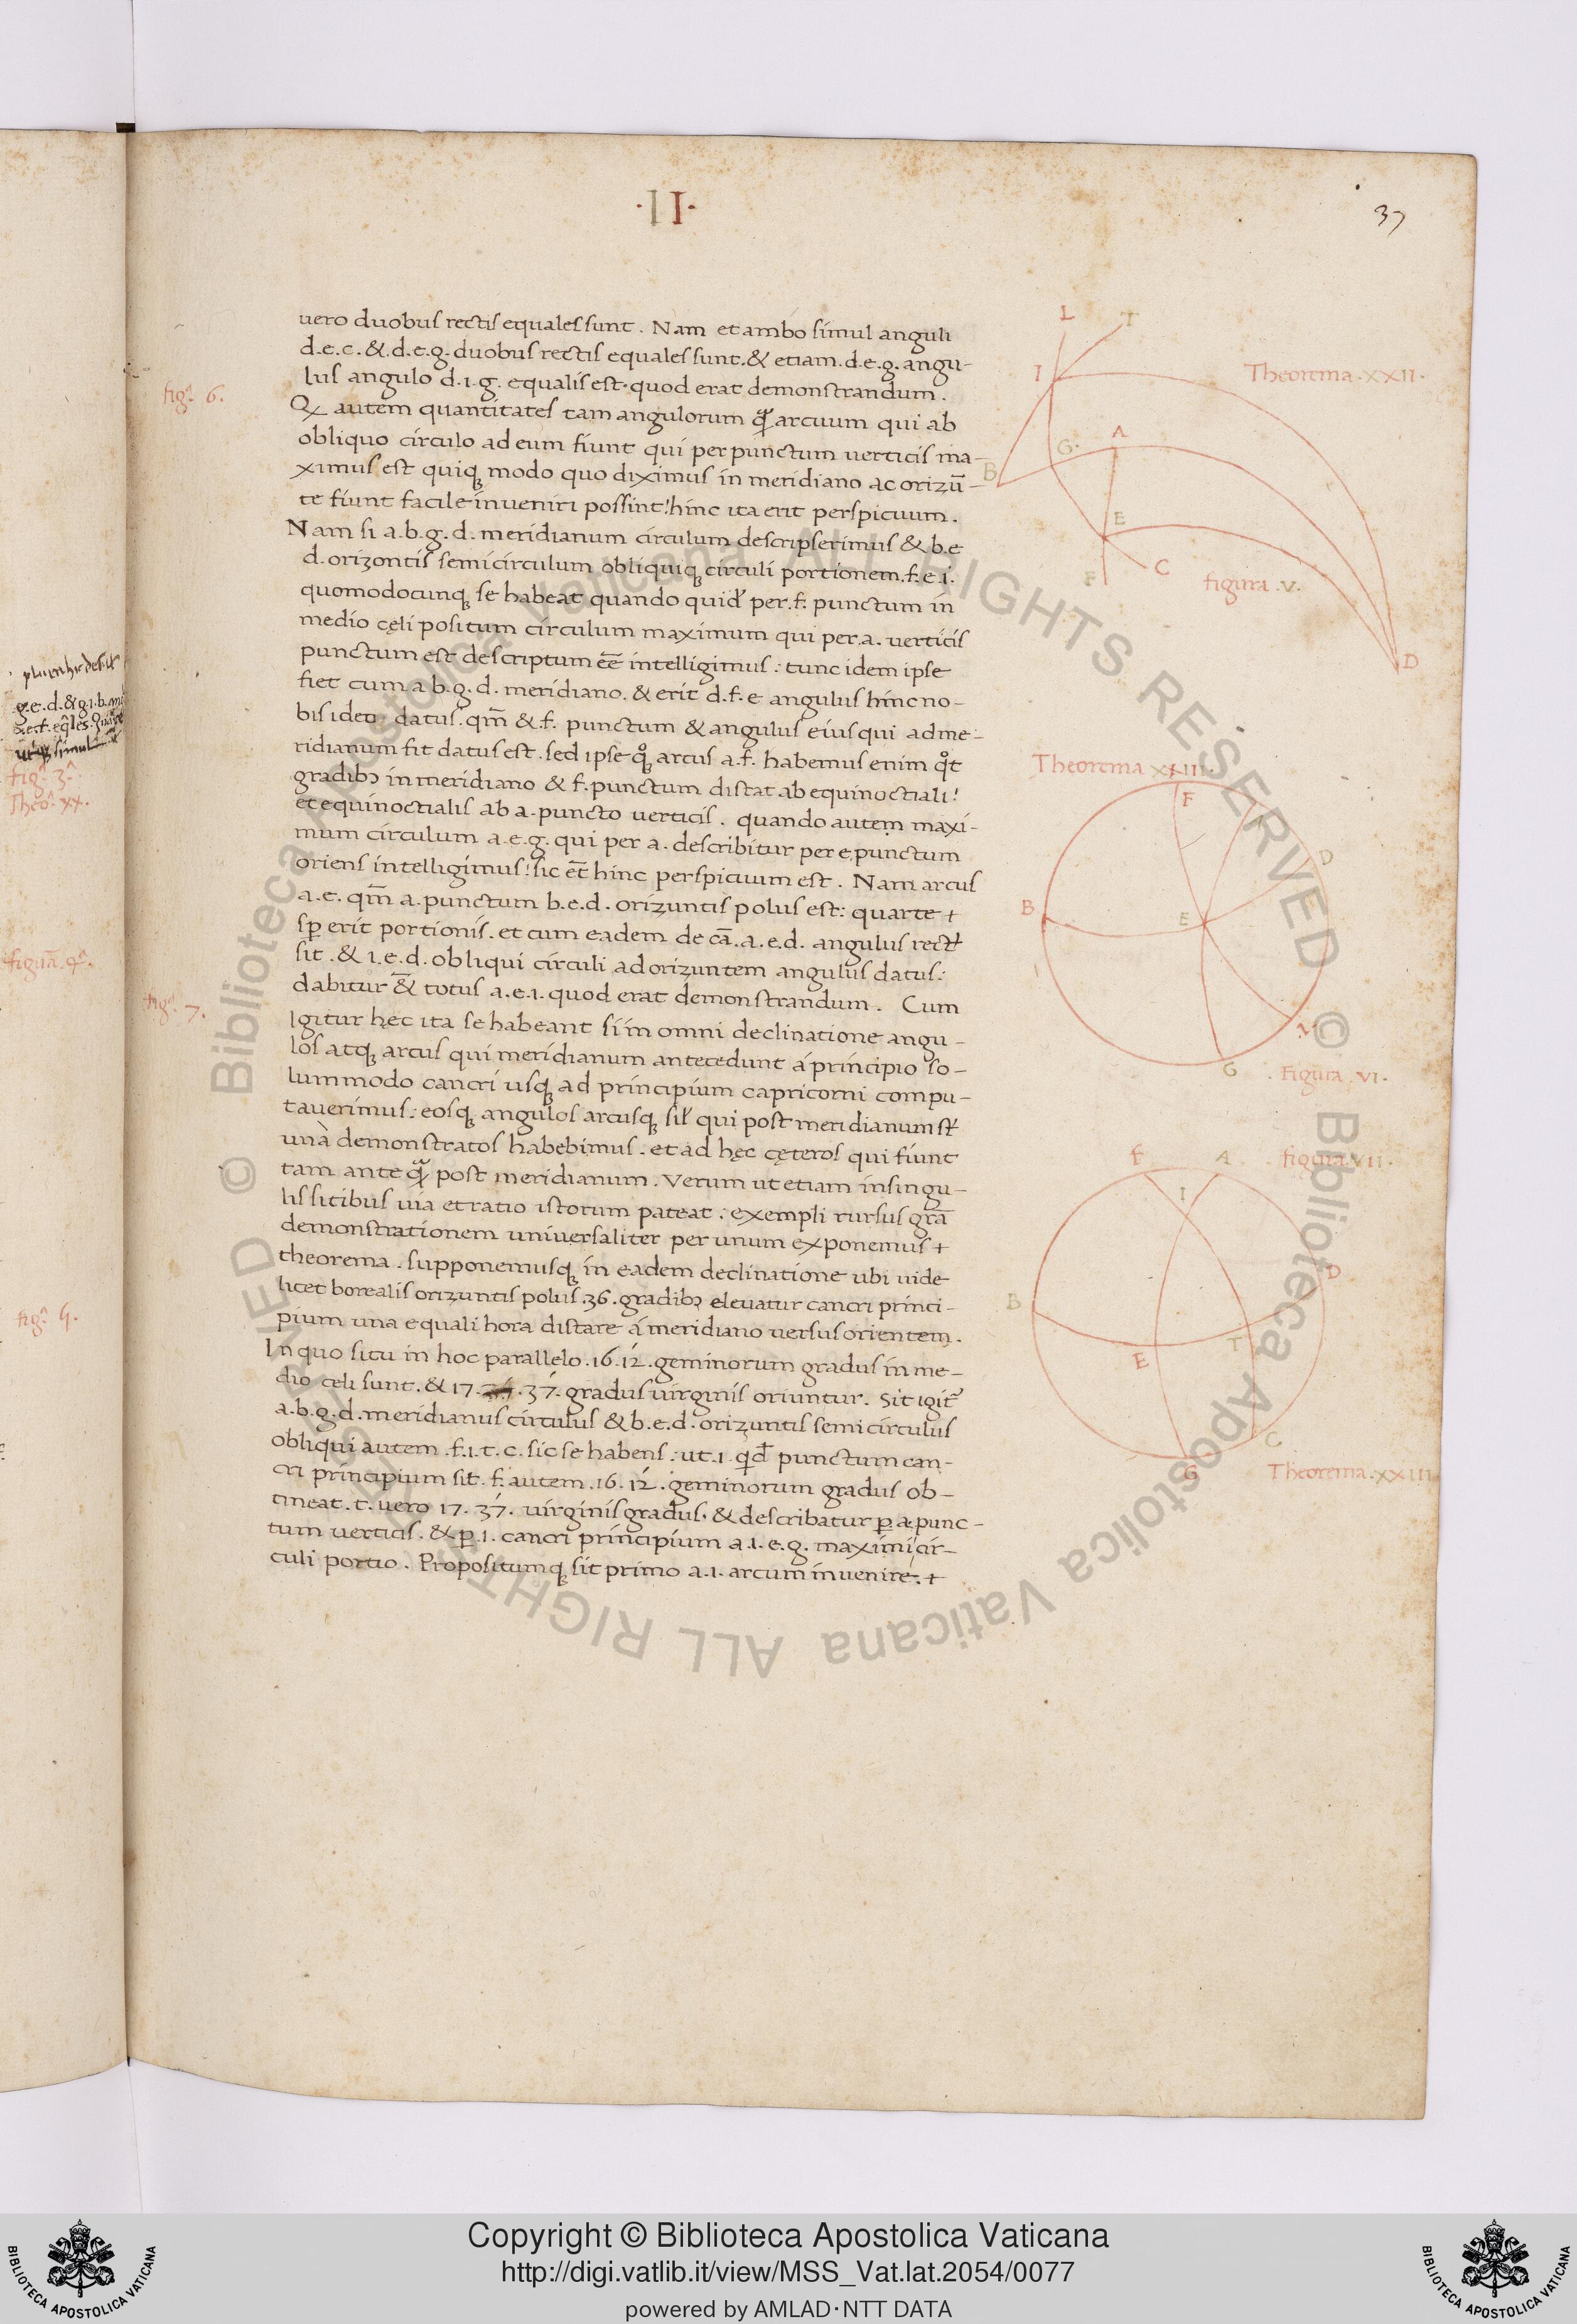 ·II·
37
uero duobus rectis equales sunt. Nam et ambo simul anguli
d.e.c. & d.e.g. duobus rectis equales sunt. & etiam. d.e.g. angu-
lus angulo d.i.g. equalis est. quod erat demonstrandum.
fig.ͣ 6.
Qꝫ autem quantitates tam angulorum ꝙᷓ arcuum qui ab
obliquo circulo ad eum fiunt qui per punctum uerticis ma-
ximus est quiqꝫ modo quo diximus in meridiano ac orizū-
te fiunt facile inueniri possint! hinc ita erit perspicuum.
Nam si a.b.g.d. meridianum circulum descripserimus & b.e
d. orizontis semicirculum obliquiqꝫ circuli portionem. f.e.i.
quomodocunqꝫ se habeat quando quid̛ per. f. punctum in
medio cęli positum circulum maximum qui per. a. uerticis
punctum est descriptum eē intelligimus: tunc idem ipse
fiet cum a b.g.d. meridiano. & erit d.f.e angulus hinc no-
bis ideo datus. qm̄ & f. punctum & angulus eius qui ad me-
ridianum fit datus est. sed ipse qͦꝫ arcus a.f. habemus enim qͦt
gradibꝫ in meridiano & f. punctum distat ab equinoctiali!
et equinoctialis ab a. puncto uerticis. quando autem maxi-
mum circulum a.e.g. qui per a. describitur per e punctum
oriens intelligimus! sic et̄ hinc perspicuum est. Nam arcus
a.e. qm̄ a. punctum b.e.d. orizuntis polus est: quarte +
sꝑ erit portionis. et cum eadem de cā. a.e.d. angulus rect̛
sit. & i.e.d. obliqui circuli ad orizuntem angulus datus:
dabitur &̄ totus a.e.i. quod erat demonstrandum. Cum
fig.ͣ 7.
Igitur hęc ita se habeant si in omni declinatione angu-
los atqꝫ arcus qui meridianum antecedunt á principio so-
lummodo cancri usqꝫ ad principium capricorni compu-
tauerimus: eosqꝫ angulos arcusqꝫ sil̛ qui post meridianum st̛
unà demonstratos habebimus. et ad hęc cęteros qui fiunt
tam ante ꝙᷓ post meridianum. Verum ut etiam in singu-
lis sitibus uia et ratio istorum pateat: exempli rursus grā
demonstrationem uniuersaliter per unum exponemus +
theorema. supponemusqꝫ in eadem declinatione ubi uide
licet borealis orizuntis polus .36. gradibꝫ eleuatur cancri princi-
pium una equali hora distare á meridiano uersus orientem.
In quo situ in hoc parallelo .16.12́. geminorum gradus in me-
dio celi sunt. & 17. 37́. gradus uirginis oriuntur. Sit igit᷑
a.b.g.d. meridianus circulus & b.e.d. orizuntis semicirculus
obliqui autem .f.i.t.c. sic se habens: ut .i. qd̄ punctum can-
cri principium sit. f. autem .16.12́. geminorum gradus ob-
tineat. t. uero 17. 37́. uirginis gradus. & describatur ꝑ a. punc-
tum uerticis. & ꝑ .i. cancri principium a.i.e.g. maximi cir-
culi portio. Propositumqꝫ sit primo a.i. arcum inuenire. +
L
T
I
Theorema .XXII.
G.
A
B
E
F
C
figura .V.
D
Theorema XXIII.
F
A
D
B
E
I
G
Figura .VI.
F
A
figura .VII.
I
B
D
E
T
G
C
Theorema .XXIII
g.e.d. & g.i.b.
fig.ͣ 3.ͣ
Theo.ͣ xx.
figurā. 4.ͣ
fig.ͣ 5.
© Biblioteca Apostolica Vaticana ALL RIGHTS RESERVED © Biblioteca Apostolica Vaticana ALL RIGHTS RESERVED
Copyright © Biblioteca Apostolica Vaticana
http://digi.vatlib.it/view/MSS_Vat.lat.2054/0077
powered by AMLAD·NTT DATA
BIBLIOTECA APOSTOLICA VATICANA
BIBLIOTECA APOSTOLICA VATICANA